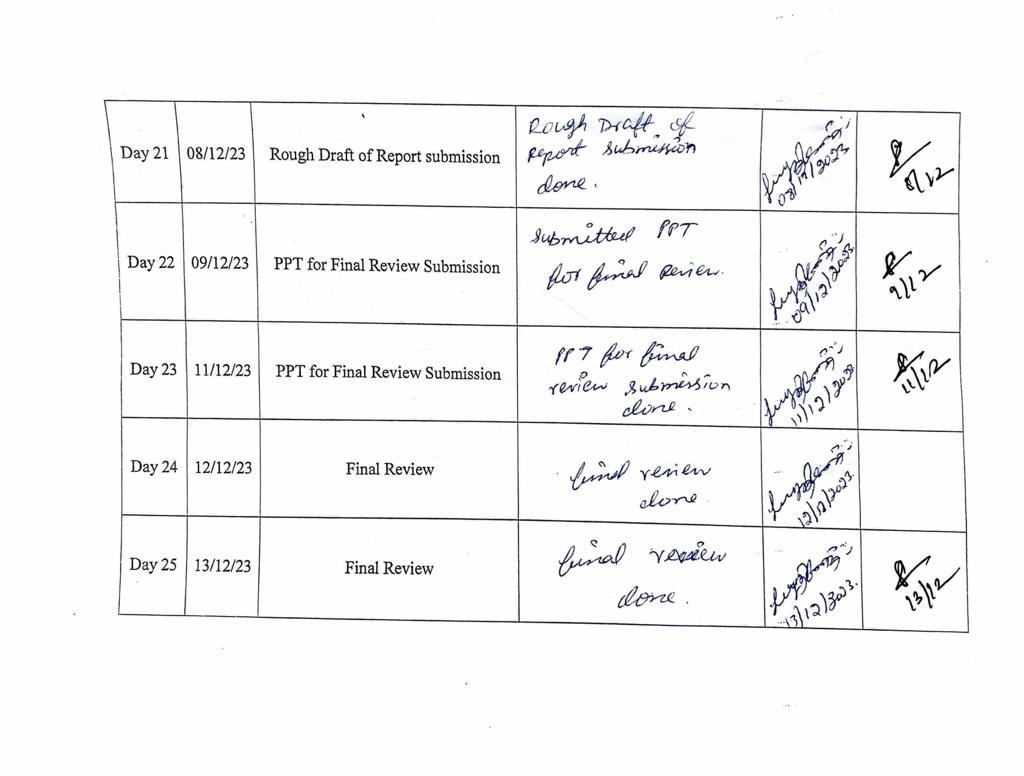 Day 21 08/12/23 Rough Draft of Report submission
Rough Draft of
Report submission
done.
08/12/2023
8/12
Day 22 09/12/23 PPT for Final Review Submission
Submitted PPT
for final Review.
09/12/2023
9/12
Day 23 11/12/23 PPT for Final Review Submission
PPT for final
review submission
done.
11/12/2023
11/12
Day 24 12/12/23 Final Review
final review
done
12/12/2023.
Day 25 13/12/23 Final Review
final review
done.
13/12/2023.
13/12